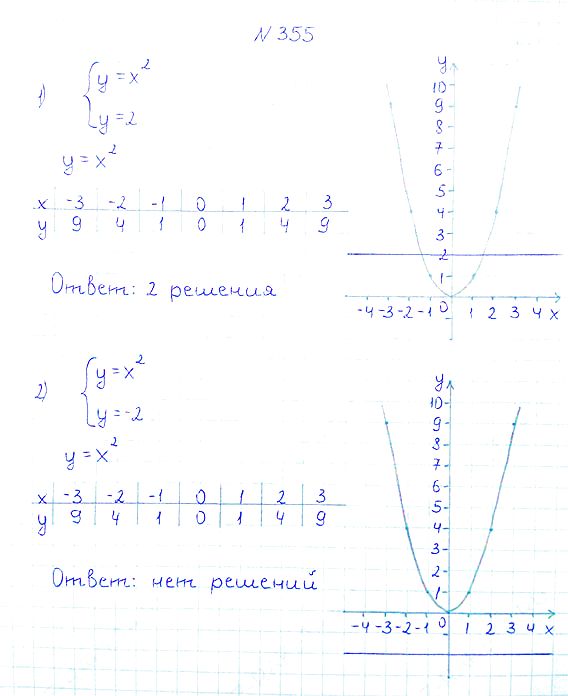 N 355
1) { y = x²
y = 2
y = x²
x -3 -2 -1 0 1 2 3
y 9 4 1 0 1 4 9
Ответ: 2 решения
y
10
9
8
7
6
5
4
3
2
1
-4 -3 -2 -1 0 1 2 3 4 x
2) { y = x²
y = -2
y = x²
x -3 -2 -1 0 1 2 3
y 9 4 1 0 1 4 9
Ответ: нет решений
y
10
9
8
7
6
5
4
3
2
1
-4 -3 -2 -1 0 1 2 3 4 x